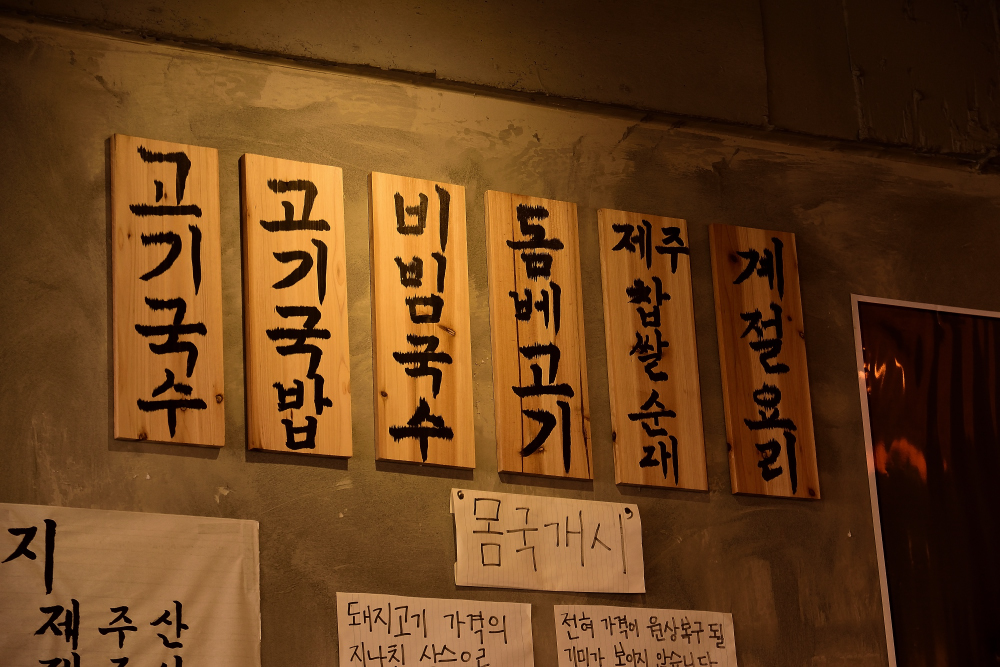 고기국수
고기국밥
비빔국수
돔베고기
제주
찹쌀순대
계절요리
몸국개시
지
제주산
돼지고기 가격의
지나친 상승으로
전혀 가격이 원상복구 될
기미가 보이지 않습니다